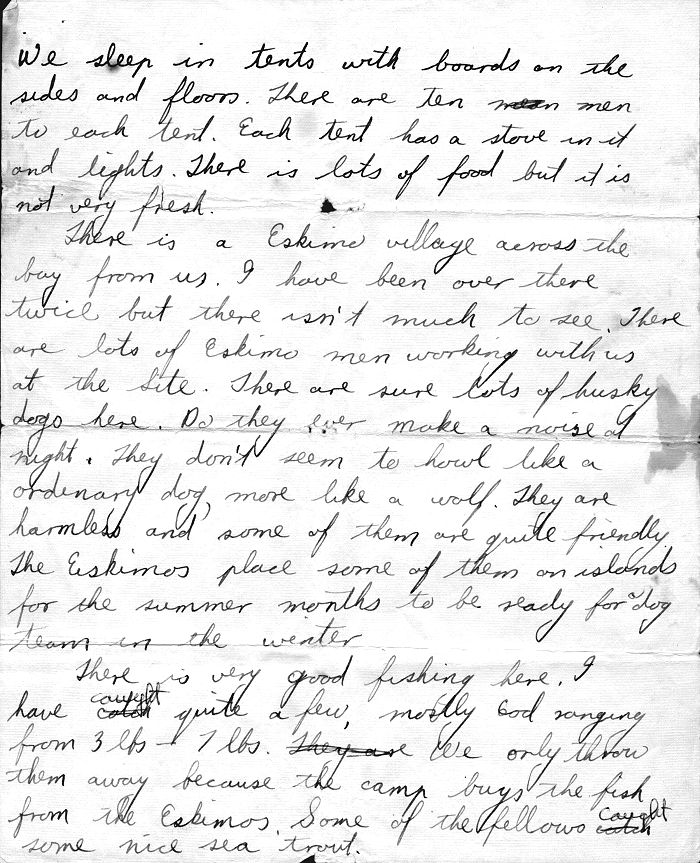 We sleep in tents with boards on the
sides and floors. There are ten mean men
to each tent. Each tent has a stove in it
and lights. There is lots of food but it is
not very fresh.
There is a Eskimo village across the
bay from us. I have been over there
twice but there isn't much to see. There
are lots of Eskimo men working with us
at the Site. There are sure lots of husky
dogs here. Do they ever make a noise at
night. They don't seem to howl like a
ordenary dog, more like a wolf. They are
harmless and some of them are quite friendly
The Eskimos place some of them on islands
for the summer months to be ready for dog
team in the winter
There is very good fishing here. I
have catch caught quite a few, mostly Cod ranging
from 3 lbs - 7 lbs. They are We only throw
them away because the camp buys the fish
from the Eskimos. Some of the fellows catch caught
some nice sea trout.